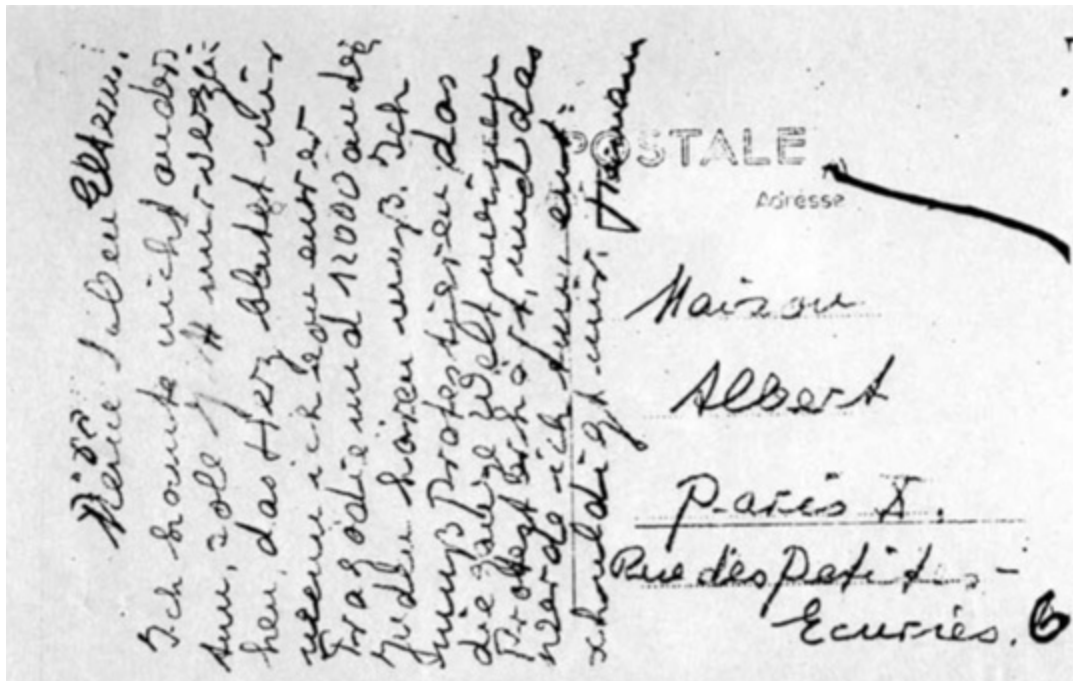 Meine lieben Eltern.
Ich konnte nicht anders
tun, soll mir verzei-
hen, das Herz blutet mir
wenn ich von eurer
Tragödie und 12000 anderer
Juden hören muß. Ich
muß Protestieren das
die ganze Welt meinen
Protest erhört, und das
werde ich tun, ent-
schuldigt mir. Hermann
POSTALE
Adresse
Maison
Albert
Paris X.
Rue des Petits-
Ecuries. 6